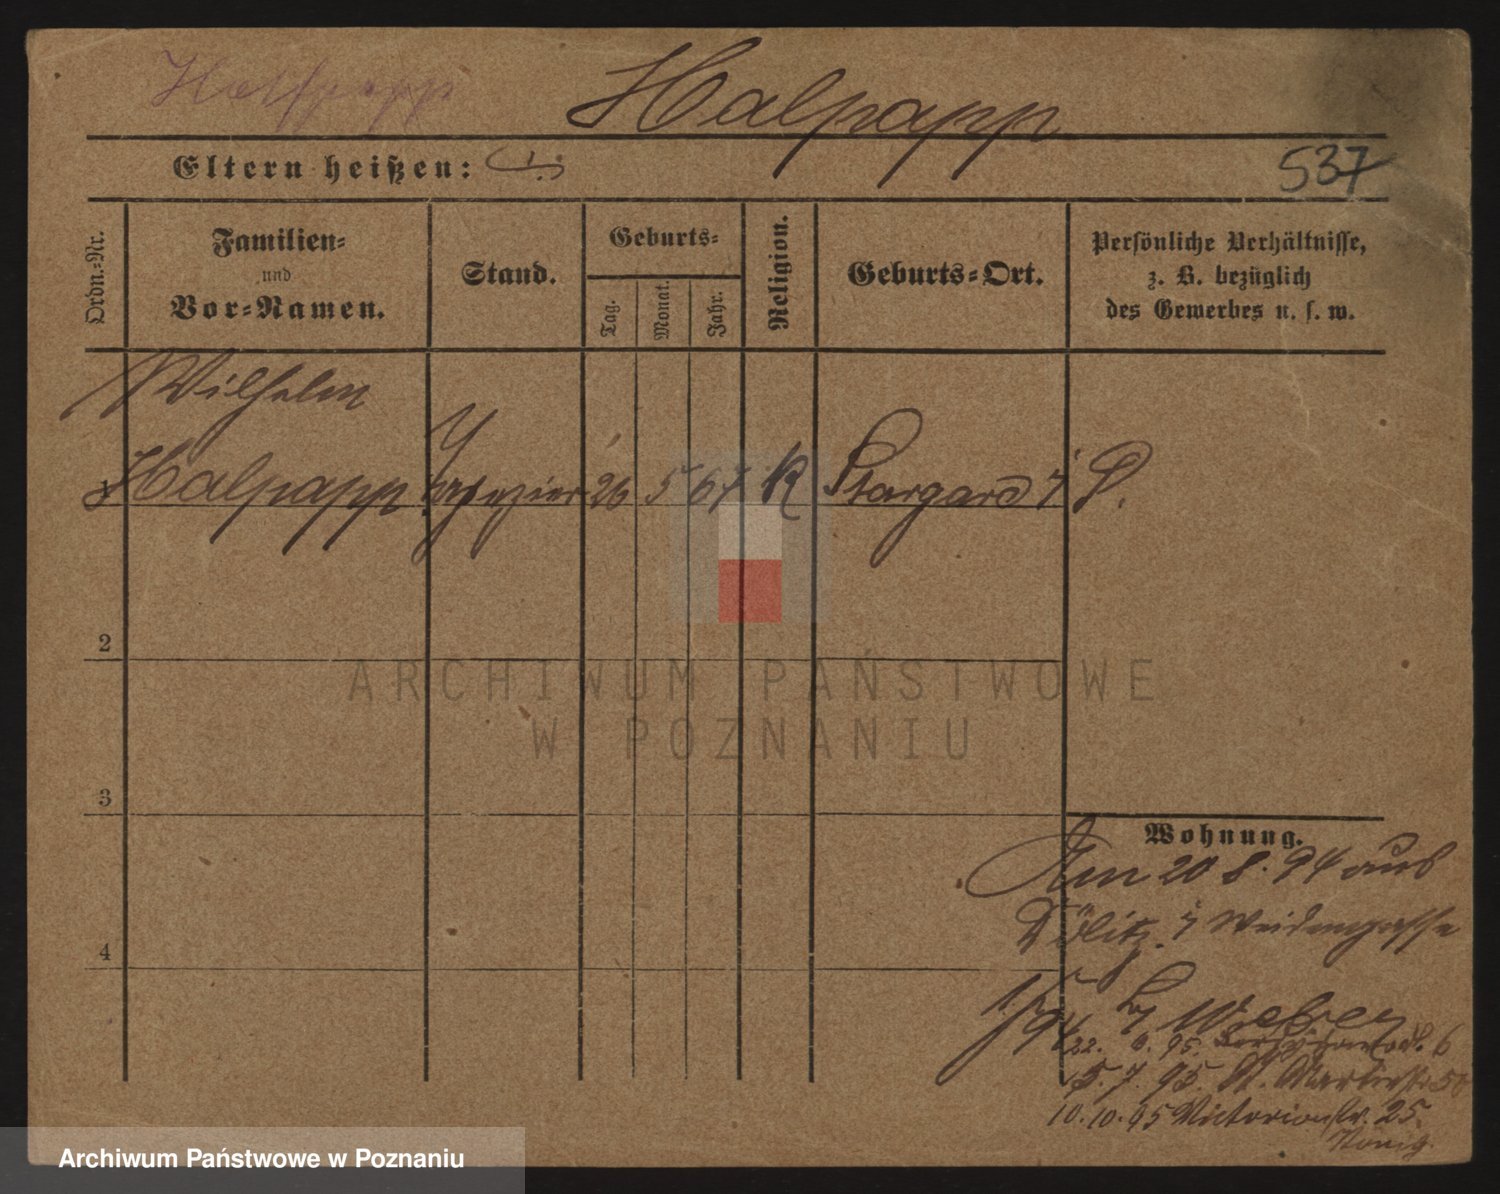 Halpapp
Halpapp
Eltern heißen:
537
Ordn.-Nr.
Familien-
und
Vor-Namen.
Stand.
Geburts-
Tag.
Monat.
Jahr.
Religion.
Geburts-Ort.
Persönliche Verhältnisse,
z. B. bezüglich
des Gewerbes u. s. w.
Wilhelm
1 Halpapp Tapezier 26 5 67 K Stargard i P.
2
3
4
Wohnung.
Am 20 8. 94 aus
Dölitz. Weidengasse
1/ 94 Weber
22. 6. 95. 6
15. 7. 95. St. Martinstr.
10. 10. 95 Victoriastr. 25.
König.
ARCHIWUM PAŃSTWOWE
W POZNANIU
Archiwum Państwowe w Poznaniu